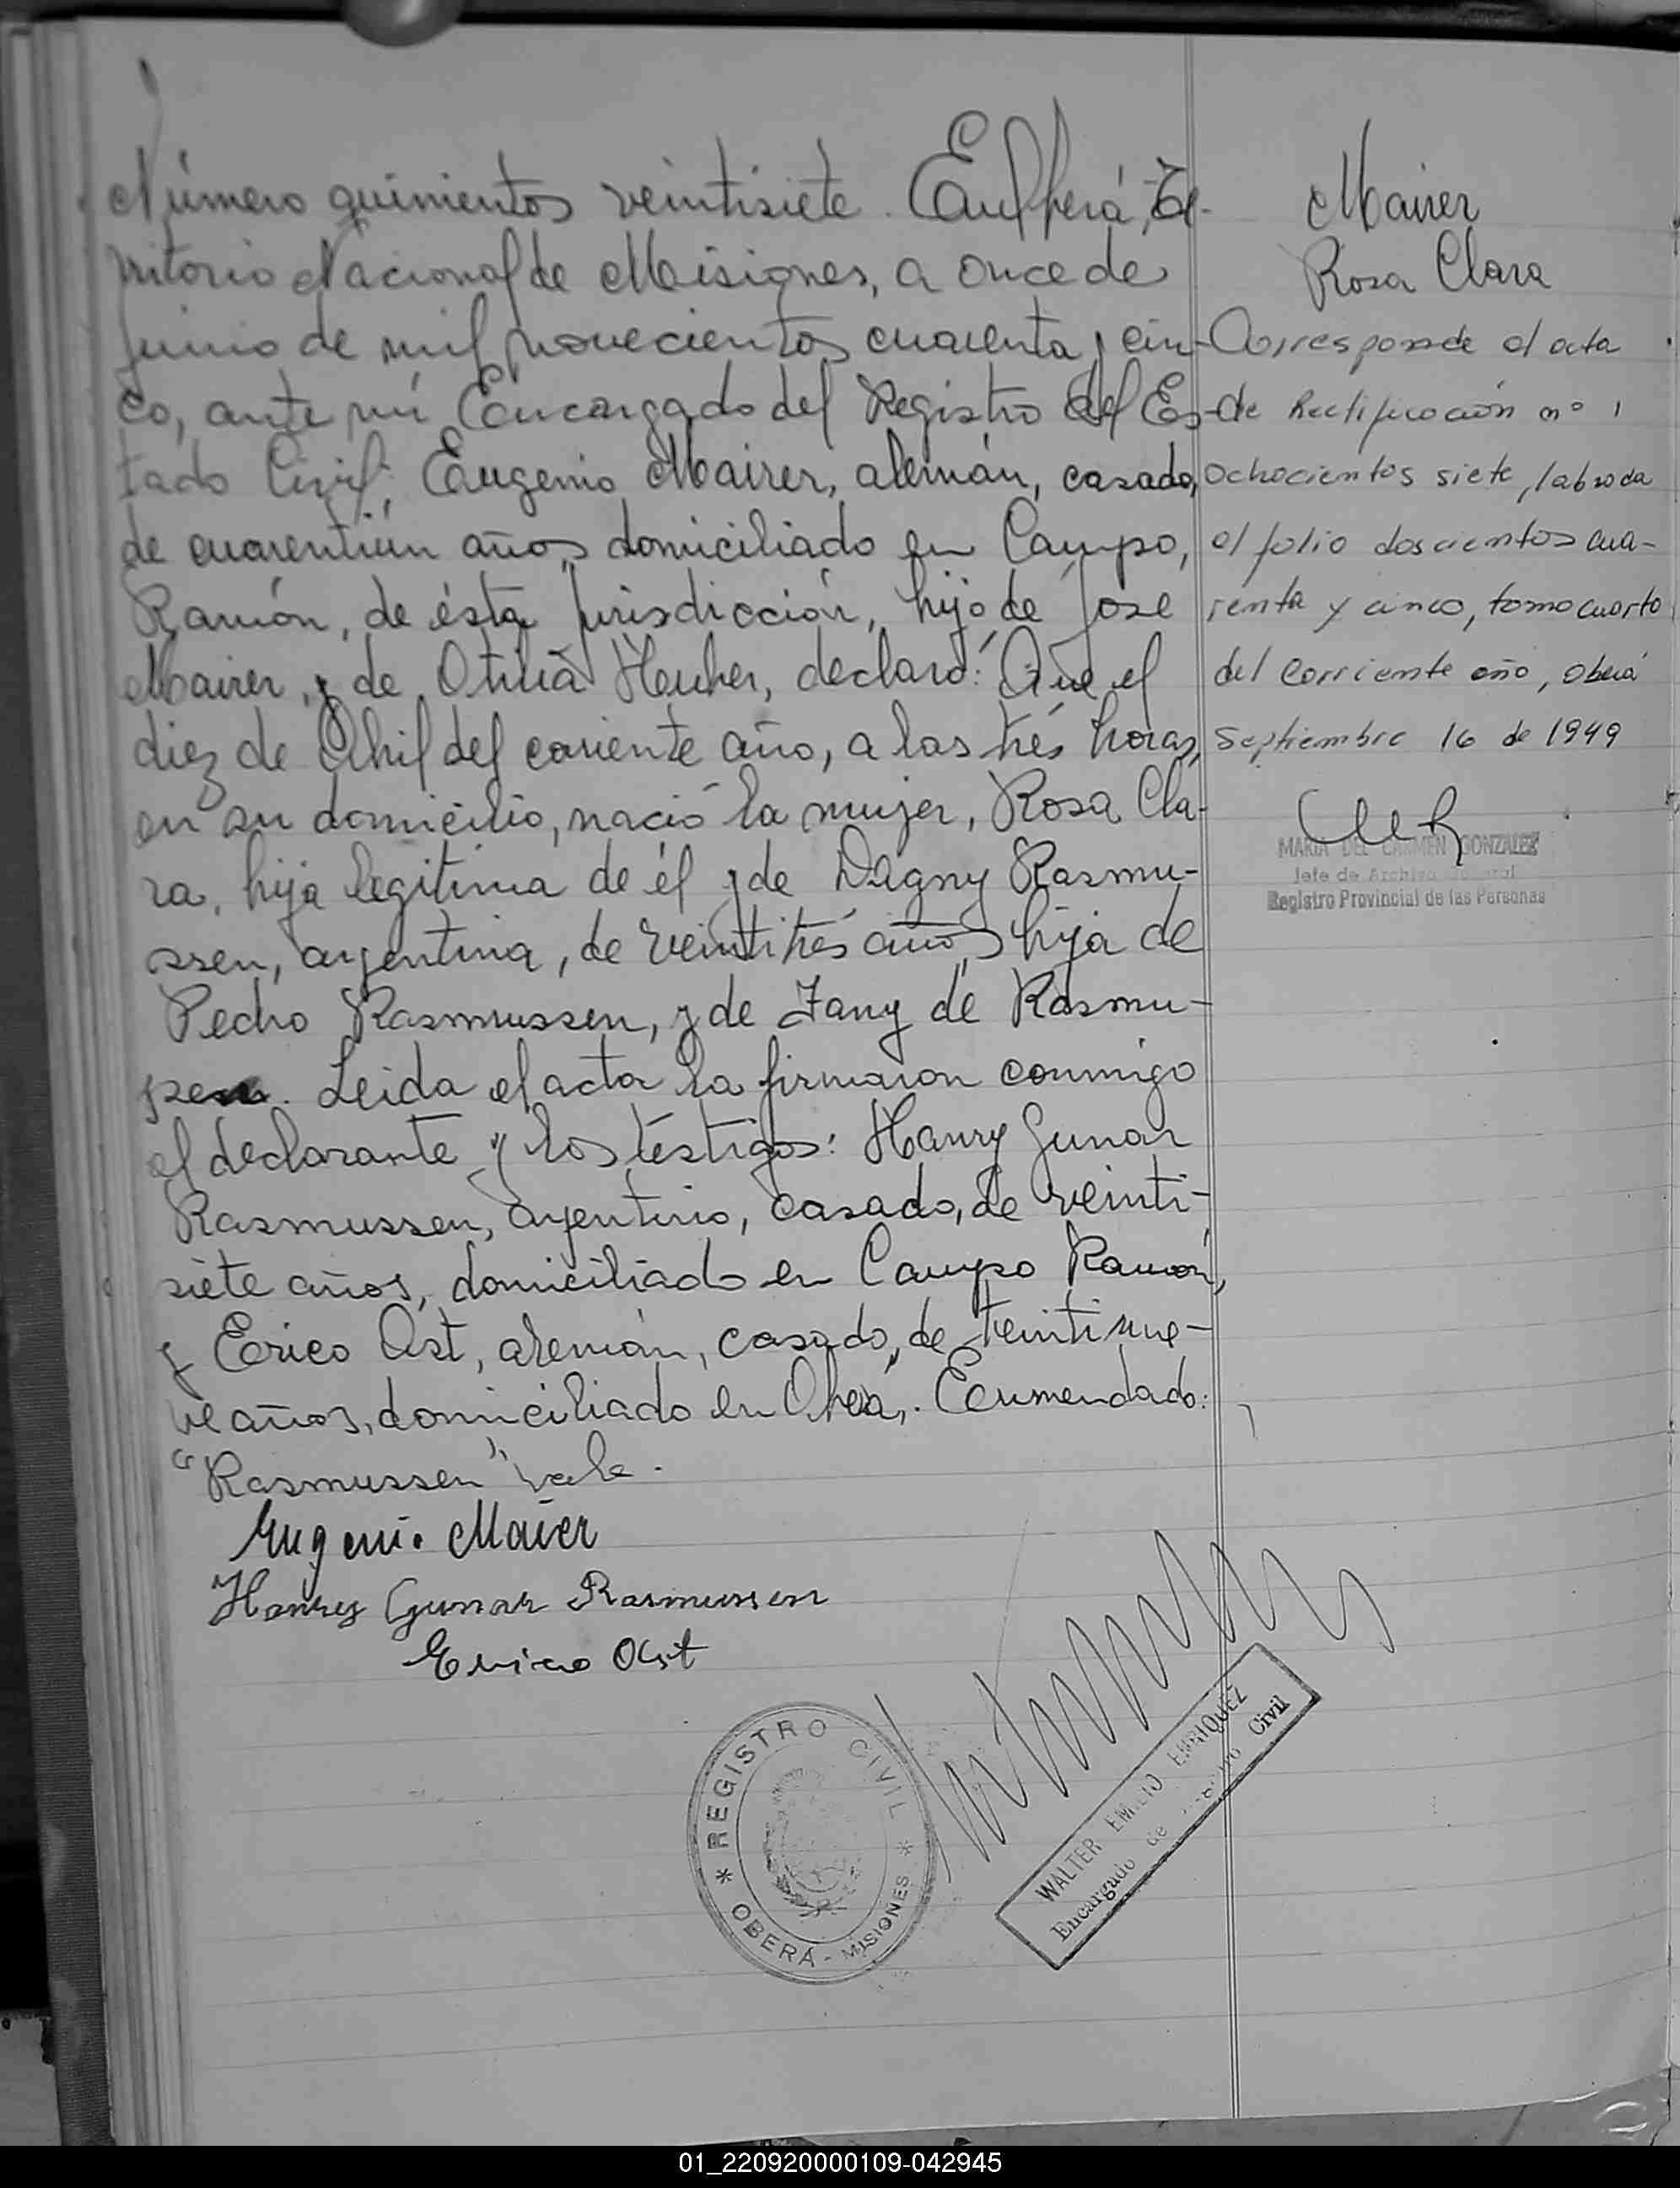 Número quinientos veintisiete. En Oberá, Te-
rritorio Nacional de Misiones, a once de
junio de mil novecientos cuarenta y cin-
co, ante mí Encargado del Registro del Es-
tado Civil, Eugenio Mairer, alemán, casado,
de cuarentiún años domiciliado en Campo,
Ramón, de ésta jurisdicción, hijo de José
Mairer, y de Otilia Huber, declaró: Que el
diez de Abril del corriente año, a las trés horas,
en su domicilio, nació la mujer, Rosa Cla-
ra, hija legítima de él y de Dagny Rasmu-
ssen, argentina, de veintitrés años, hija de
Pedro Rasmussen, y de Fany de Rasmu-
ssen. Leida el acta la firmaron conmigo
el declarante y los testigos: Hanry Gunar
Rasmussen, argentino, casado, de veinti-
siete años, domiciliado en Campo Ramón,
y Erico Ost, alemán, casado, de treintinue-
ve años, domiciliado en Oberá,. Enmendado:
"Rasmussen" vale.
Eugenio Maier
Hanry Gunar Rasmussen
Erico Ost
Mairer
Rosa Clara
Corresponde al acta
de Rectificación nº
ochocientos siete, labrada
al folio doscientos cua-
renta y cinco, tomo cuarto
del corriente año, Oberá
Septiembre 16 de 1949
MARIA DEL CARMEN GONZALEZ
Jefe de Archivo General
Registro Provincial de las Personas
* REGISTRO CIVIL *
OBERÁ - MISIONES
WALTER EMILIO ENRIQUEZ
Encargado de Registro Civil
01_220920000109-042945